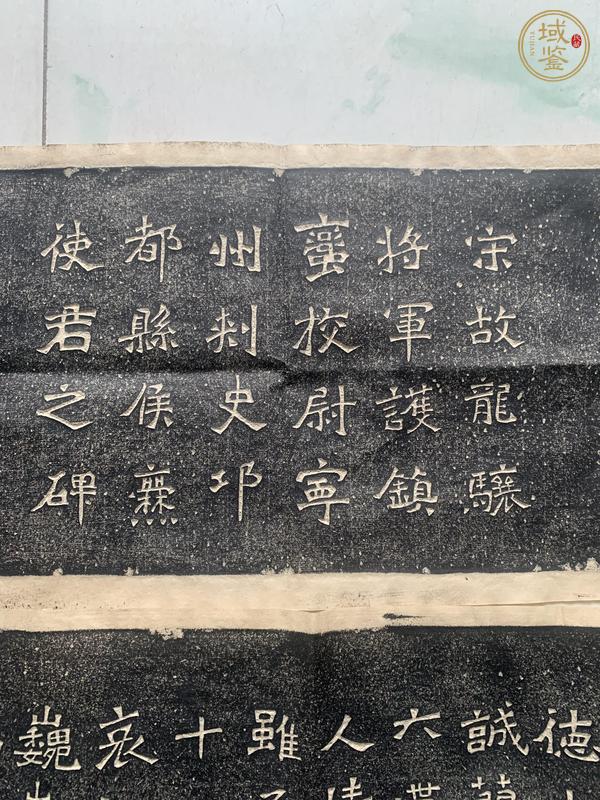 宋故龍驤
將軍護鎮
蠻校尉寧
州刺史邛
都縣侯爨
使君之碑
德
誠
六
人
雖
十
哀
巍
域鉴
YUJIAN